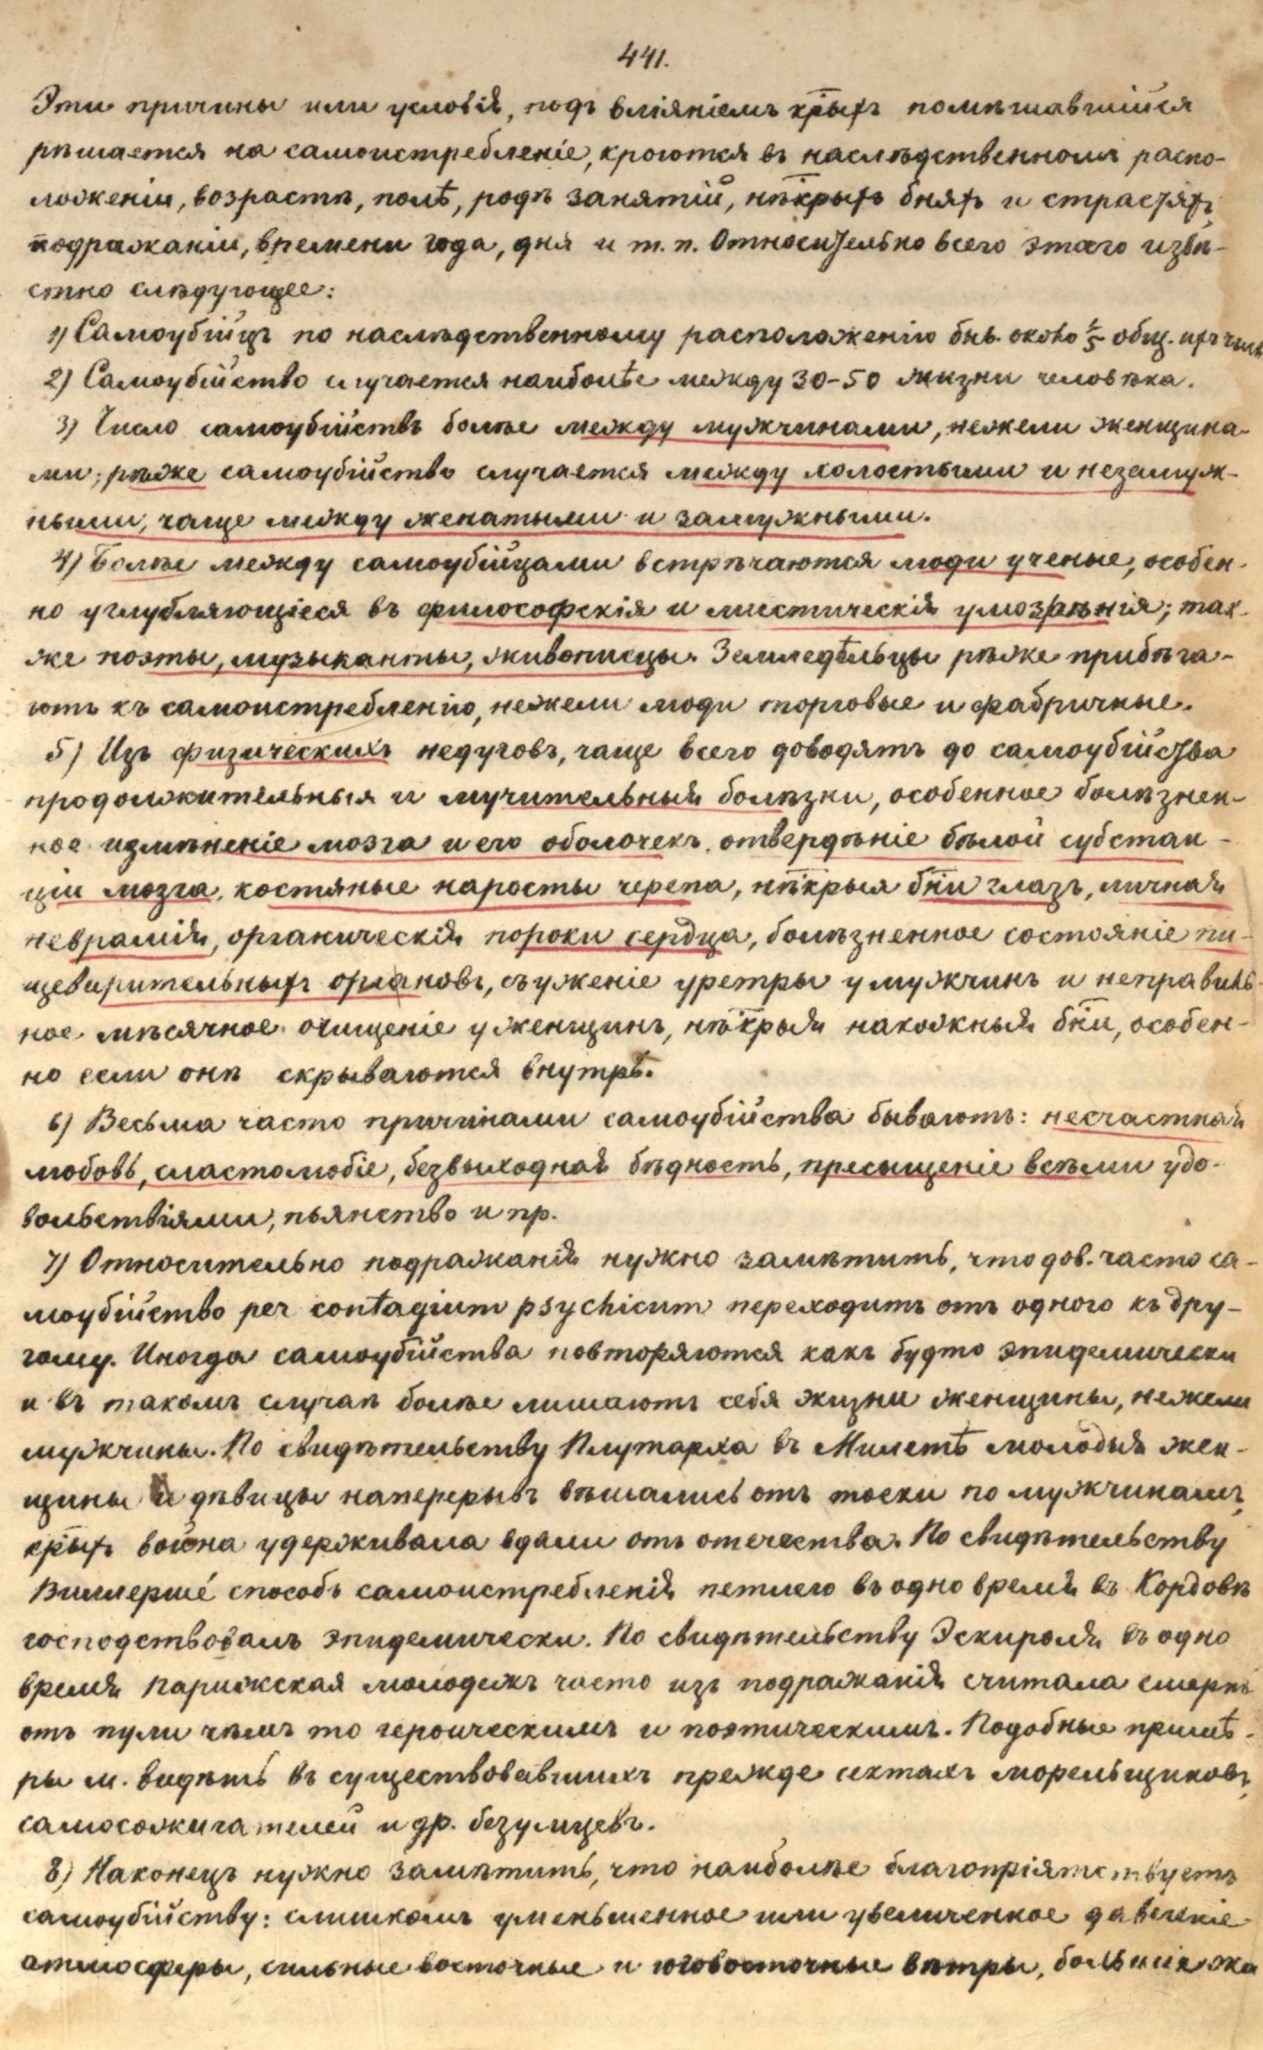 441.
Эти причины или условія, подъ вліяніемъ крыхъ помѣшавшійся
рѣшается на самоистребленіе, кроются въ наслѣдственномъ распо-
ложеніи, возрастѣ, полѣ, родѣ занятій, нѣкрыхъ бняхъ и страстяхъ,
подражаніи, времени года, дня и т. п. Относительно всего этого извѣ-
стно слѣдующее:
1) Самоубійцъ по наслѣдственному расположенію бнв. около 1/5 общ. ихъ числа
2) Самоубійство случается наиболѣе между 30-50 жизни человѣка.
3) Число самоубійствъ болѣе между мужчинами, нежели женщина-
ми; рѣже самоубійство случается между холостыми и незамуж-
ными, чаще между женатыми и замужными.
4) Болѣе между самоубійцами встрѣчаются люди ученые, особен-
но углубляющіеся въ философскія и мистическія умозрѣнія; так-
же поэты, музыканты, живописцы. Земледѣльцы рѣже прибѣга-
ютъ къ самоистребленію, нежели люди торговые и фабричные.
5) Изъ физическихъ недуговъ, чаще всего доводятъ до самоубійства
продолжительныя и мучительныя болѣзни, особенное болѣзнен-
ное измѣненіе мозга и его оболочекъ, отвердѣніе бѣлой субстан-
ціи мозга, костяные наросты черепа, нѣкрыя бни глазъ, личная
невралгія, органическія пороки сердца, болѣзненное состояніе пи-
щеварительныхъ органовъ, съуженіе уретры у мужчинъ и неправиль-
ное мѣсячное очищеніе у женщинъ, нѣкрыя накожныя бни, особен-
но если онѣ скрываются внутрь.
6) Весьма часто причинами самоубійства бываютъ: несчастная
любовь, сластолюбіе, безвыходная бѣдность, пресыщеніе всѣми удо-
вольствіями, пьянство и пр.
7) Относительно подражанія нужно замѣтить, что дов. часто са-
моубійство per contagium psychicum переходитъ отъ одного къ дру-
гому. Иногда самоубійства повторяются какъ будто эпидемически
и въ такомъ случаѣ болѣе лишаютъ себя жизни женщины, нежели
мужчины. По свидѣтельству Плутарха въ Милетѣ молодыя жен-
щины и дѣвицы наперерывъ вѣшались отъ тоски по мужчинамъ,
крыхъ война удерживала вдали отъ отечества. По свидѣтельству
Виллерше́ способъ самоистребленія петлею въ одно время въ Кордовѣ
господствовалъ эпидемически. По свидѣтельству Эскироля въ одно
время Парижская молодежъ часто изъ подражанія считала смерть
отъ пули чѣмъ то героическимъ и поэтическимъ. Подобные примѣ-
ры м. видѣть въ существовавшихъ прежде сектахъ морельщиковъ,
самосожигателей и др. безумцевъ.
8) Наконецъ нужно замѣтить, что наиболѣе благопріятствуетъ
самоубійству: слишкомъ уменьшенное или увеличенное давленіе
атмосферы, сильные восточные и юговосточные вѣтры, большія жа